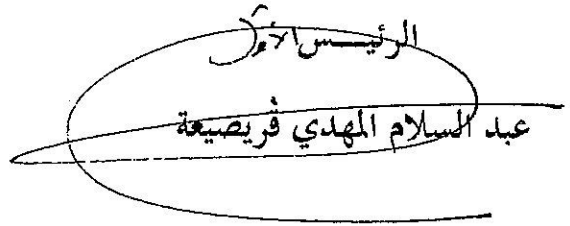 الرئيس الأول
عبد السلام المهدي قريصيعة